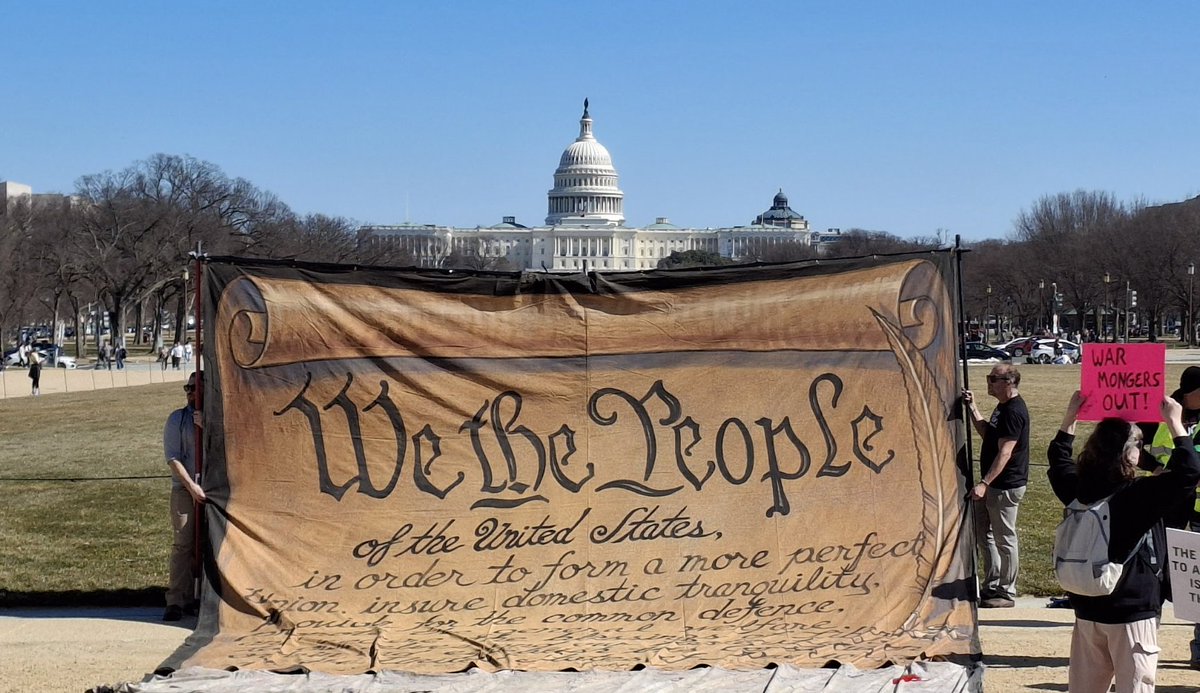 We the People
of the United States,
in order to form a more perfect
Union, insure domestic tranquility,
provide for the common defence,
WAR
MONGERS
OUT!
THE
TO A
IS
TH